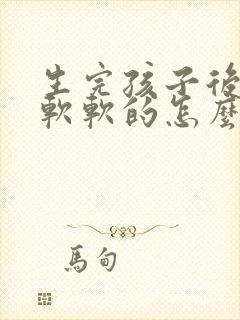 生完孩子後
軟軟的怎麼
馬甸